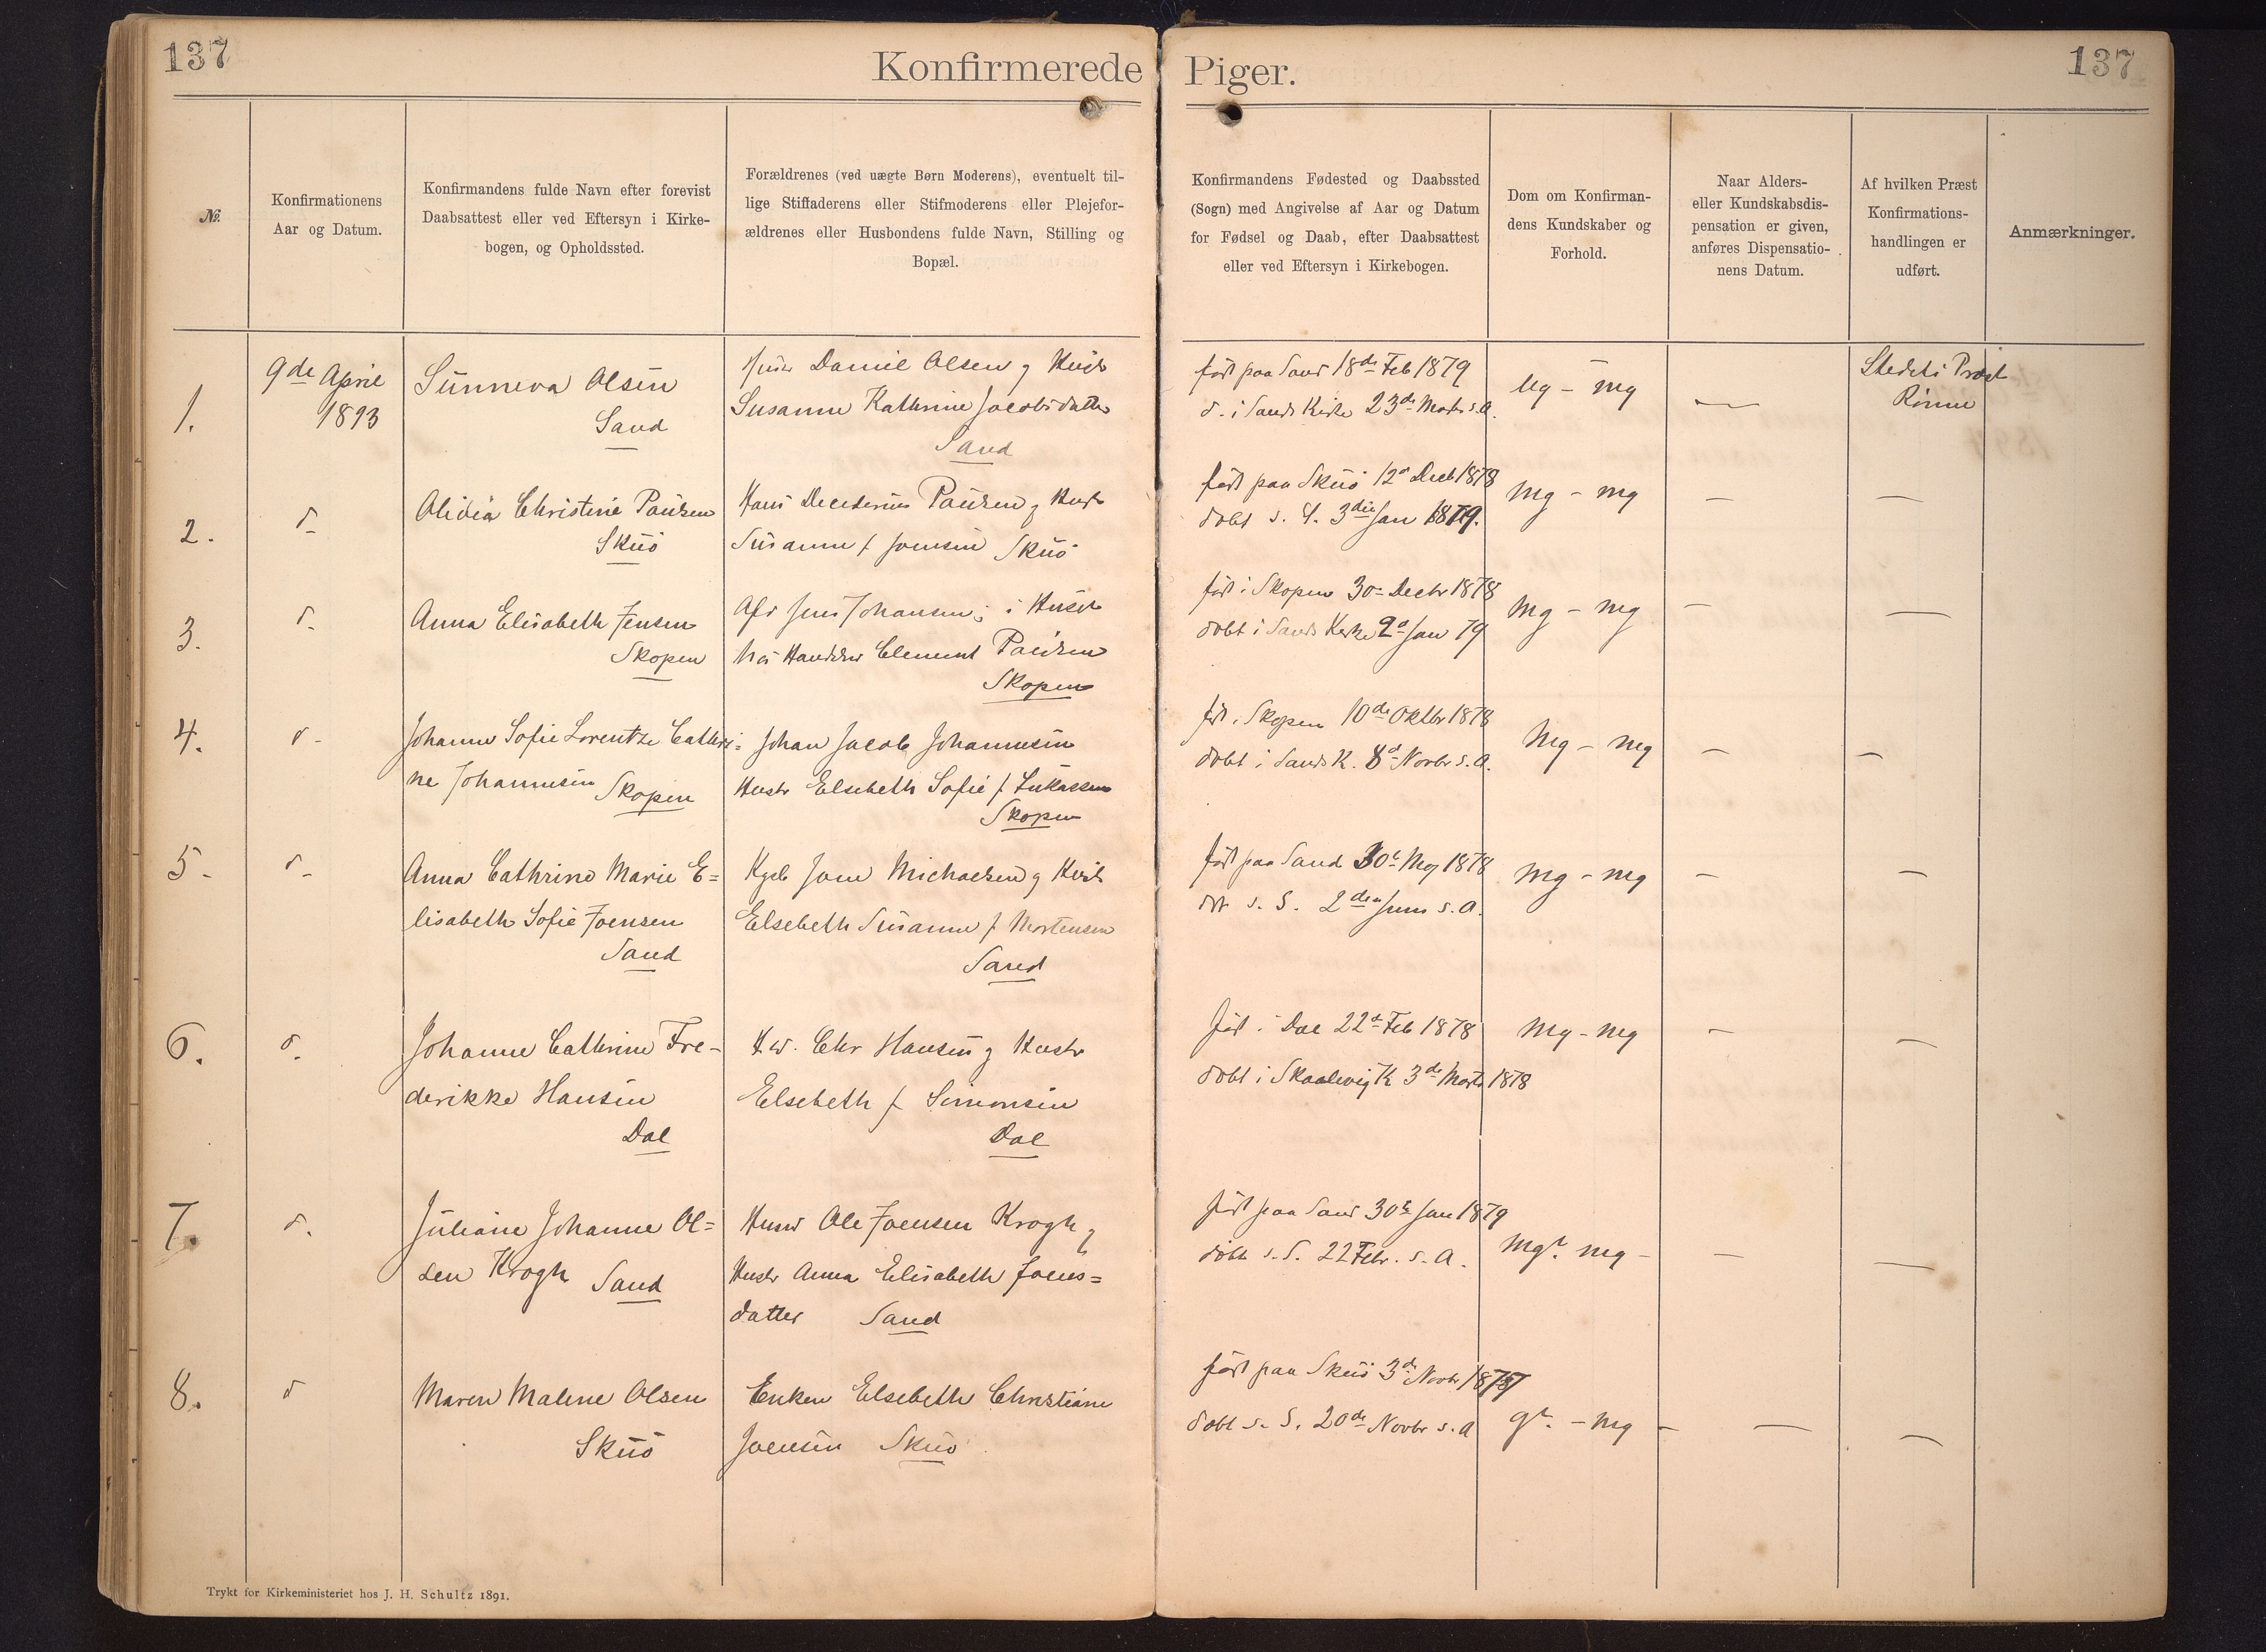 137
Konfirmerede Piger.
137
№.
Konfirmationens
Aar og Datum.
Konfirmandens fulde Navn efter forevist
Daabsattest eller ved Eftersyn i Kirke-
bogen, og Opholdssted.
Forældrenes (ved uægte Børn Moderens), eventuelt til-
lige Stiffaderens eller Stifmoderens eller Plejefor-
ældrenes eller Husbondens fulde Navn, Stilling og
Bopæl.
Konfirmandens Fødested og Daabssted
(Sogn) med Angivelse af Aar og Datum
for Fødsel og Daab, efter Daabsattest
eller ved Eftersyn i Kirkebogen.
Dom om Konfirman-
dens Kundskaber og
Forhold.
Naar Alders-
eller Kundskabsdis-
pensation er given,
anføres Dispensatio-
nens Datum.
Af hvilken Præst
Konfirmations-
handlingen er
udført.
Anmærkninger.
1.
9de April
1893
Sunneva Olsen
Sand
Daniel Olsen og Hustr
Susanne Kathrine Jacobsdatter
Sand
født paa Sand 18de Feb 1879
d. i Sands Kirke 23de Marts s.A.
Ug - mg
Stedets Præst
Rønne
2.
d-
Alidia Christine Poulsen
Skuö
Hans Poulsen og Hustr
Susanne f. Joensen Skuö
født paa Skuö 12d Decb 1878
döbt s. S. 3die Jan 1879.
mg - mg
3.
d-
Anna Elisabeth Jensen
Skopen
Afd Jens Johansen; i Huset
hos Clement Poulsen
Skopen
født i Skopen 30- Decbr 1878
döbt i Sands Kirke 9d Jan 79
mg - mg
4.
d-
Johanne Sofie Lorentze Cathri=
ne Johannesen Skopen
Johan Jacob Johannesen
Hustr Elsebeth Sofie f. Lukassen
Skopen
født i Skopen 10de Oktbr 1878
döbt i Sands K. 8d Novbr s.A.
mg - mg
5-
d-
Anna Cathrine Marie E=
lisabeth Sofie Joensen
Sand
Joen Michaelsen og Hustr
Elsebeth Susanne f Mortensen
Sand
født paa Sand 30t Maj 1878
döbt s. S. 2den Juni s.A.
mg - mg
6.
d.
Johanne Cathrine Fre-
derikke Hansen
Dal
Chr Hansen og Hustr
Elsebeth f. Simonsen
Dal
født i Dal 22d Feb 1878
döbt i Skaalevig K 3de Marts 1878
mg - mg
7.
d.
Juliane Johanne Ol=
sen Krogh Sand
Husmd Ole Joensen Krogh og
Hustr Anna Elisabeth Joens=
datter Sand
født paa Sand 30t Jan 1879
döbt s.S. 22 Febr. s.A.
mg÷ mg -
8.
d
Maren Malene Olsen
Skuö
Enken Elsebeth Christiane
Joensen Skuö
født paa Skuö 3de Novbr 1878
döbt s. S. 20de Novbr s.A
g÷ - mg -
Trykt for Kirkeministeriet hos J. H. Schultz 1891.